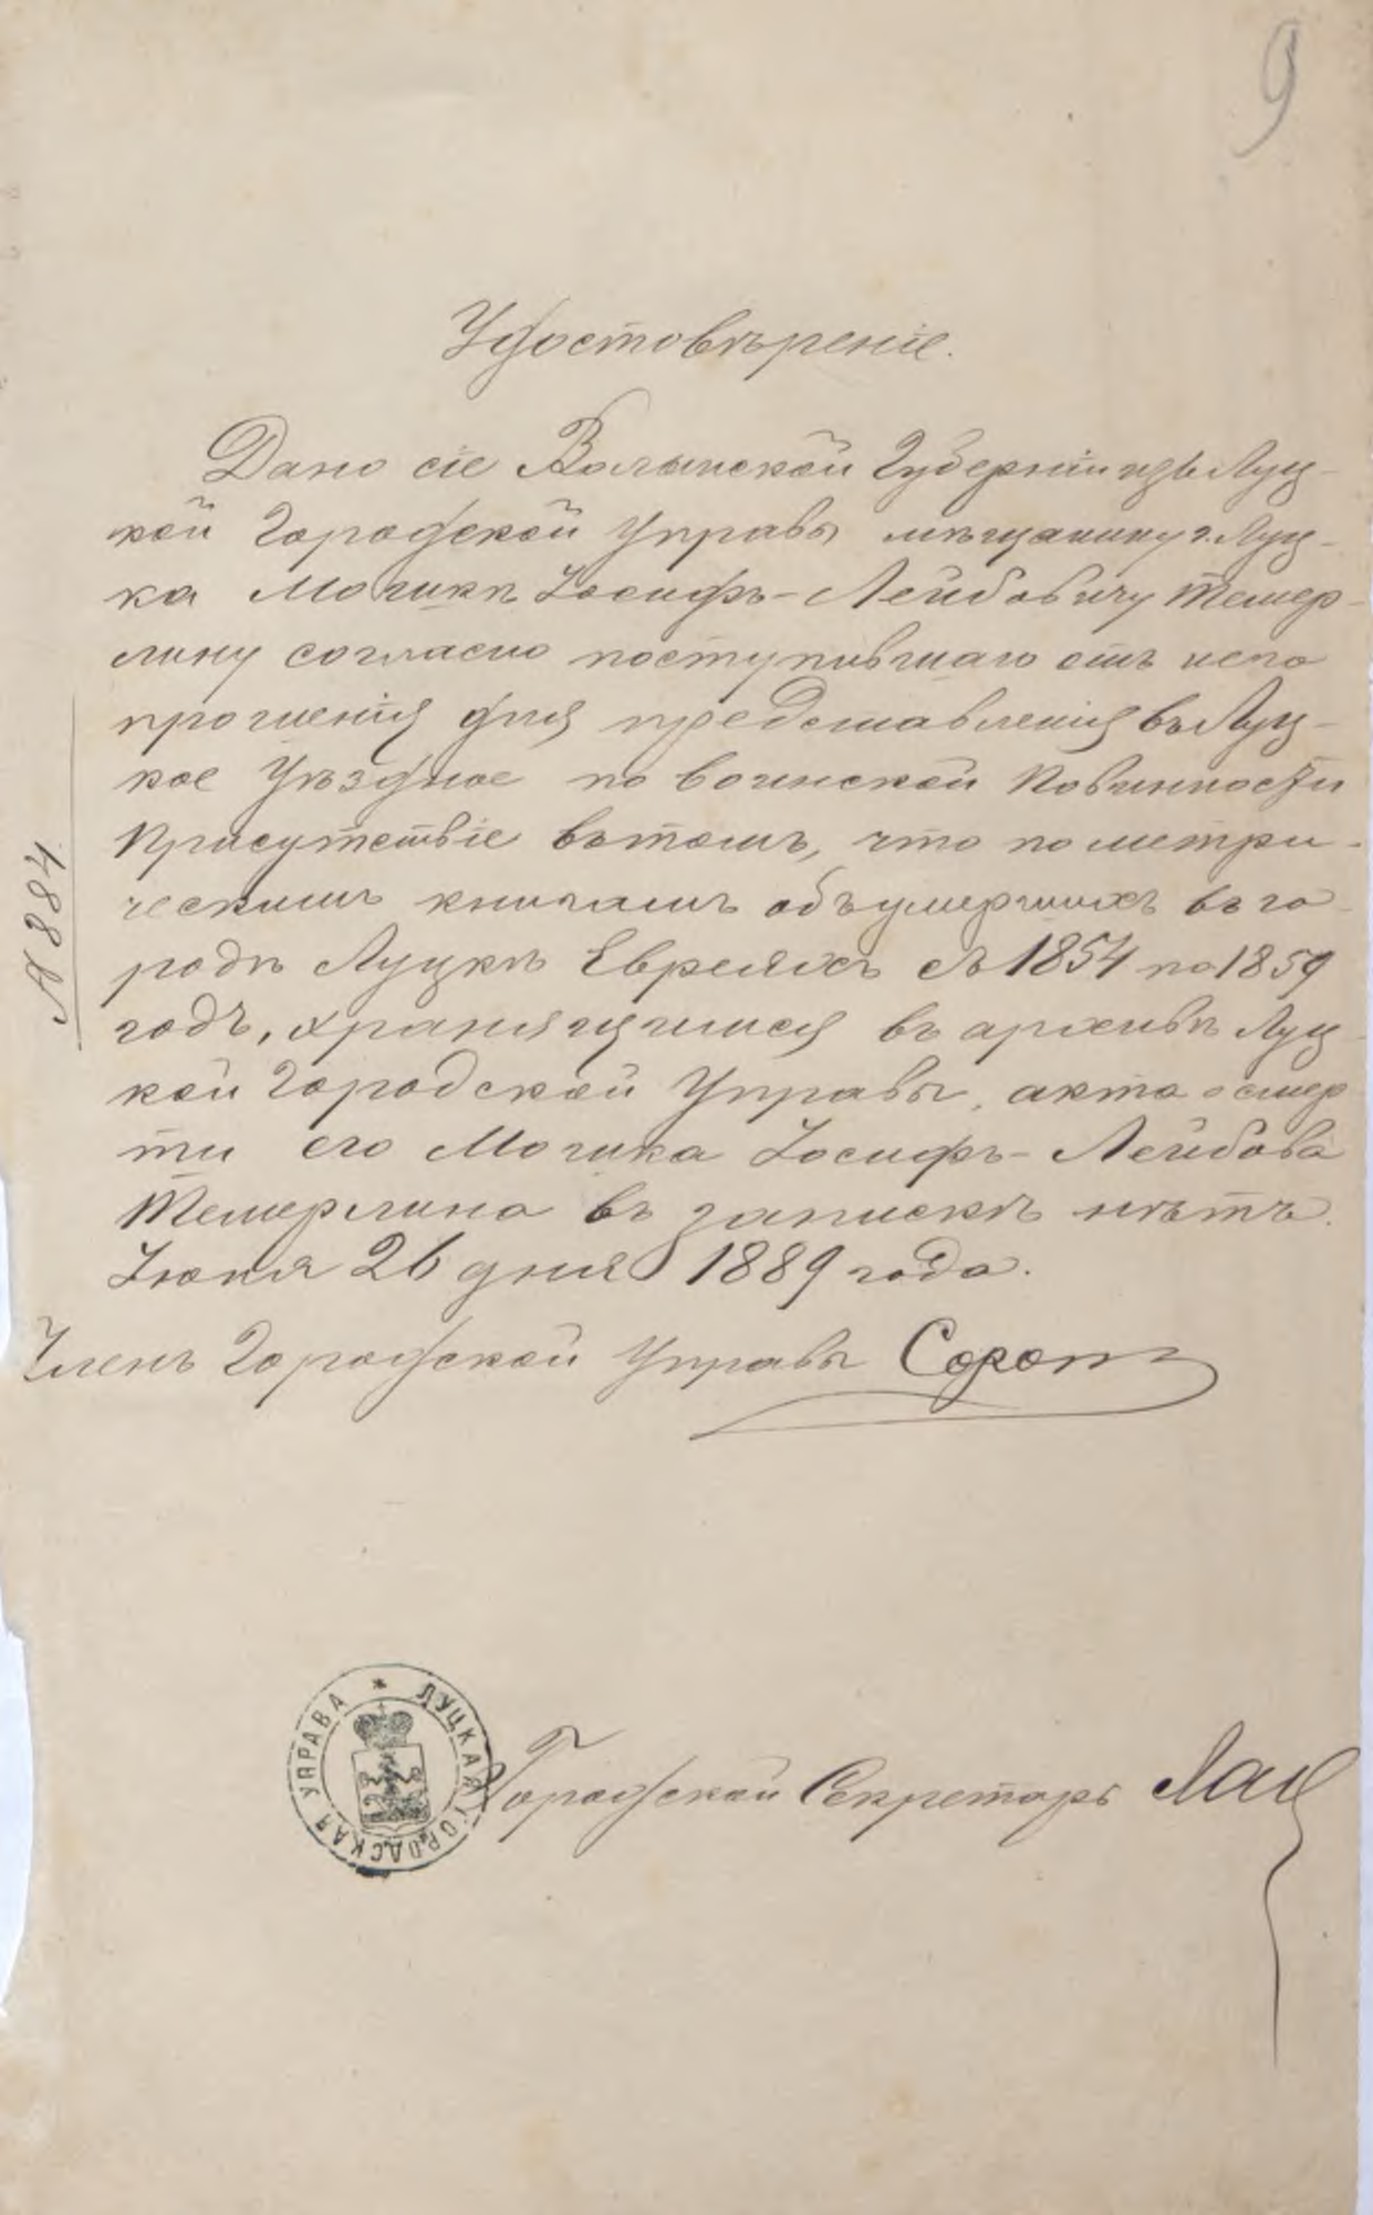 9
Удостовѣреніе.
Дано сіе Волынской Губерніи изъ Луц-
кой Городской Управы мѣщанину г. Луц-
ка Мошикѣ Іосифъ-Лейбовичу Темер-
лину согласно поступившаго отъ него
прошенія для представленія въ Луц-
кое Уѣздное по воинской Повинности
Присутствіе въ томъ, что по метри-
ческимъ книгамъ объ умершихъ въ го-
родѣ Луцкѣ Евреяхъ съ 1854 по 1859
годъ, хранящимся въ архивѣ Луц-
кой Городской Управы, акта о смер-
ти его Мошика Іосифъ-Лейбова
Темерлина въ запискѣ нѣтъ.
Іюня 26 дня 1889 года.
Членъ Городской Управы
Городской Секретарь
№ 884
ЛУЦКАЯ ГОРОДСКАЯ УПРАВА